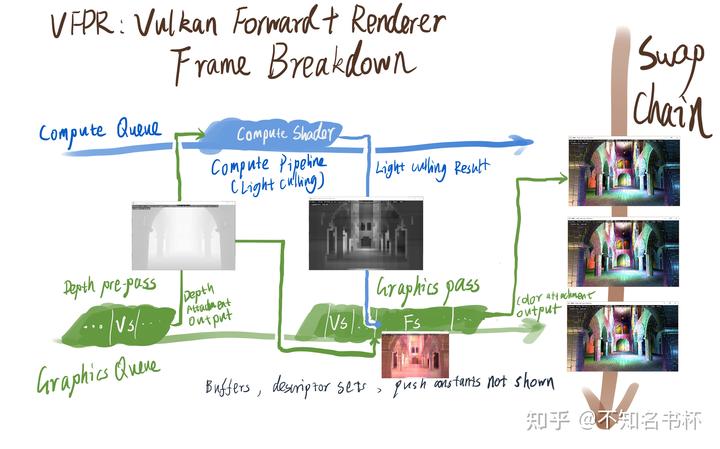 VFPR: Vulkan Forward+ Renderer
Frame Breakdown
Swap
Chain
Compute Queue
Compute Shader
Compute Pipeline
(Light Culling)
Light Culling Result
Depth pre-pass
Depth
Attachment
Output
Graphics pass
Color attachment
output
... | Vs | ...
Vs | ...
Fs
| ...
Graphics Queue
Buffers, descriptor sets, push constants not shown
知乎 @不知名书杯